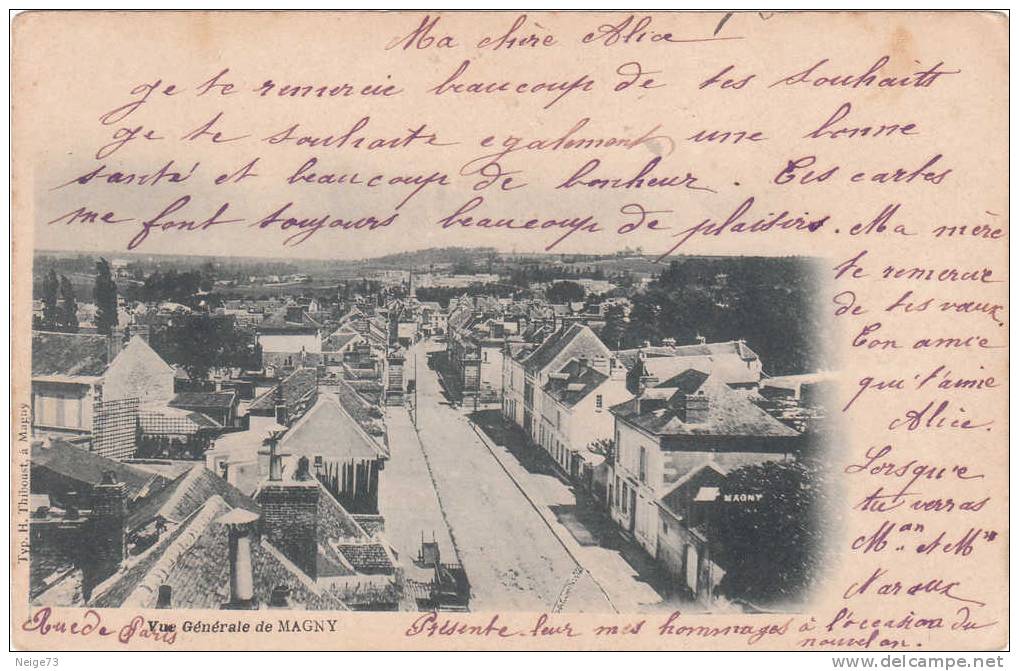 Ma chère Alice
je te remercie beaucoup de tes souhaits
je te souhaite egalement une bonne
santé et beaucoup de bonheur. Tes cartes
me font toujours beaucoup de plaisirs. Ma mère
te remercie
de tes vœux.
Ton amie
qui t'aime
Alice.
Lorsque
tu verras
Man. et Mr
MAGNY
Typ. H. Thiboust, à Magny
Rue de Paris
Vue Générale de MAGNY
Présente leur mes hommages à l'occasion du
nouvel an.
Neige73
http://www.delcampe.net